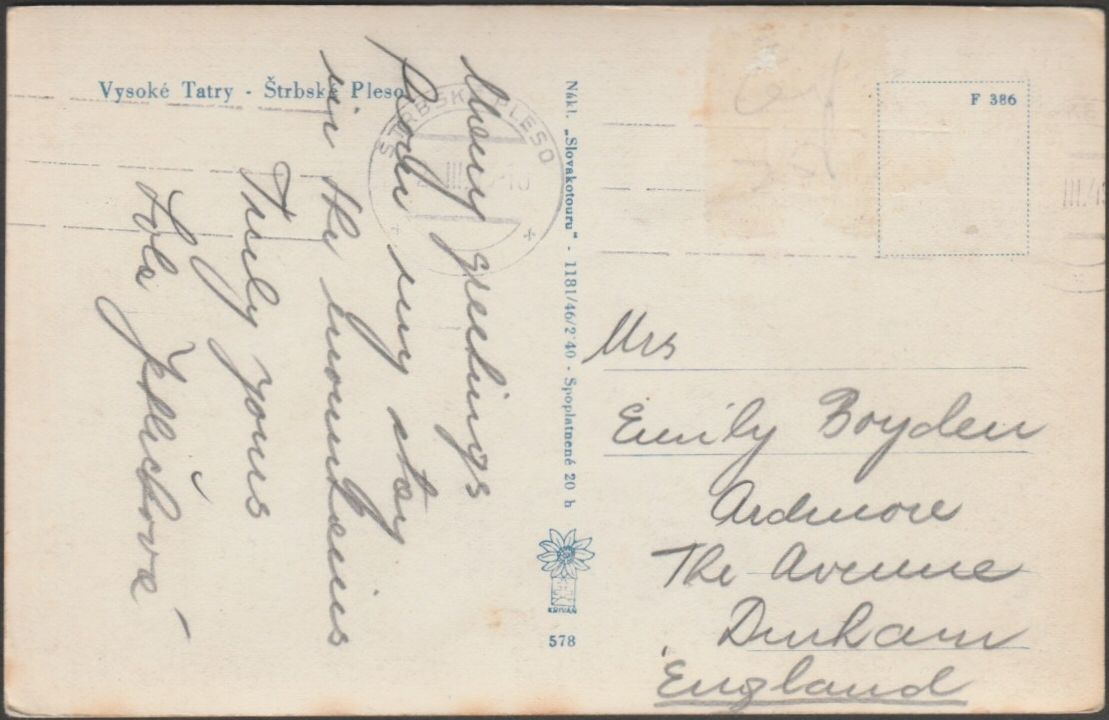 Vysoké Tatry - Štrbské Pleso
ŠTRBSKÉ PLESO
III
Many greetings
from my stay
in the mountains
Truly yours
Nákl. „Slovakotouru" - 1181/46/2˙40 - Spoplatnené 20 h
KRIVÁŇ
578
F 386
III.4
Mrs
Emily Boyden
Ardmore
The Avenue
Durham
England